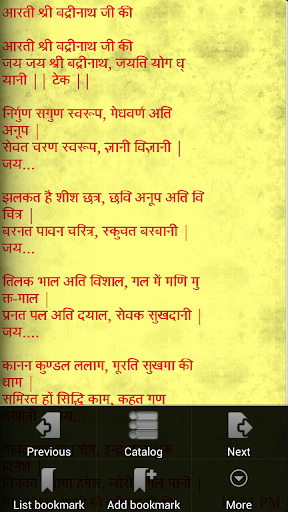 आरती श्री बद्रीनाथ जी की
आरती श्री बद्रीनाथ जी की
जय जय श्री बद्रीनाथ, जयति योग ध्
यानी || टेक ||
निर्गुण सगुण स्वरूप, मेधवर्ण अति
अनूप |
सेवत चरण स्वरूप, ज्ञानी विज्ञानी |
जय...
झलकत है शीश छत्र, छवि अनूप अति वि
चित्र |
बरनत पावन चरित्र, स्कुचत बरबानी |
जय...
तिलक भाल अति विशाल, गल में मणि मु
क्त-माल |
प्रनत पल अति दयाल, सेवक सुखदानी |
जय....
कानन कुण्डल ललाम, मूरति सुखमा की
धाम |
समिरत हों सिद्धि काम, कहत गण
Previous
Catalog
Next
List bookmark
Add bookmark
More
PM